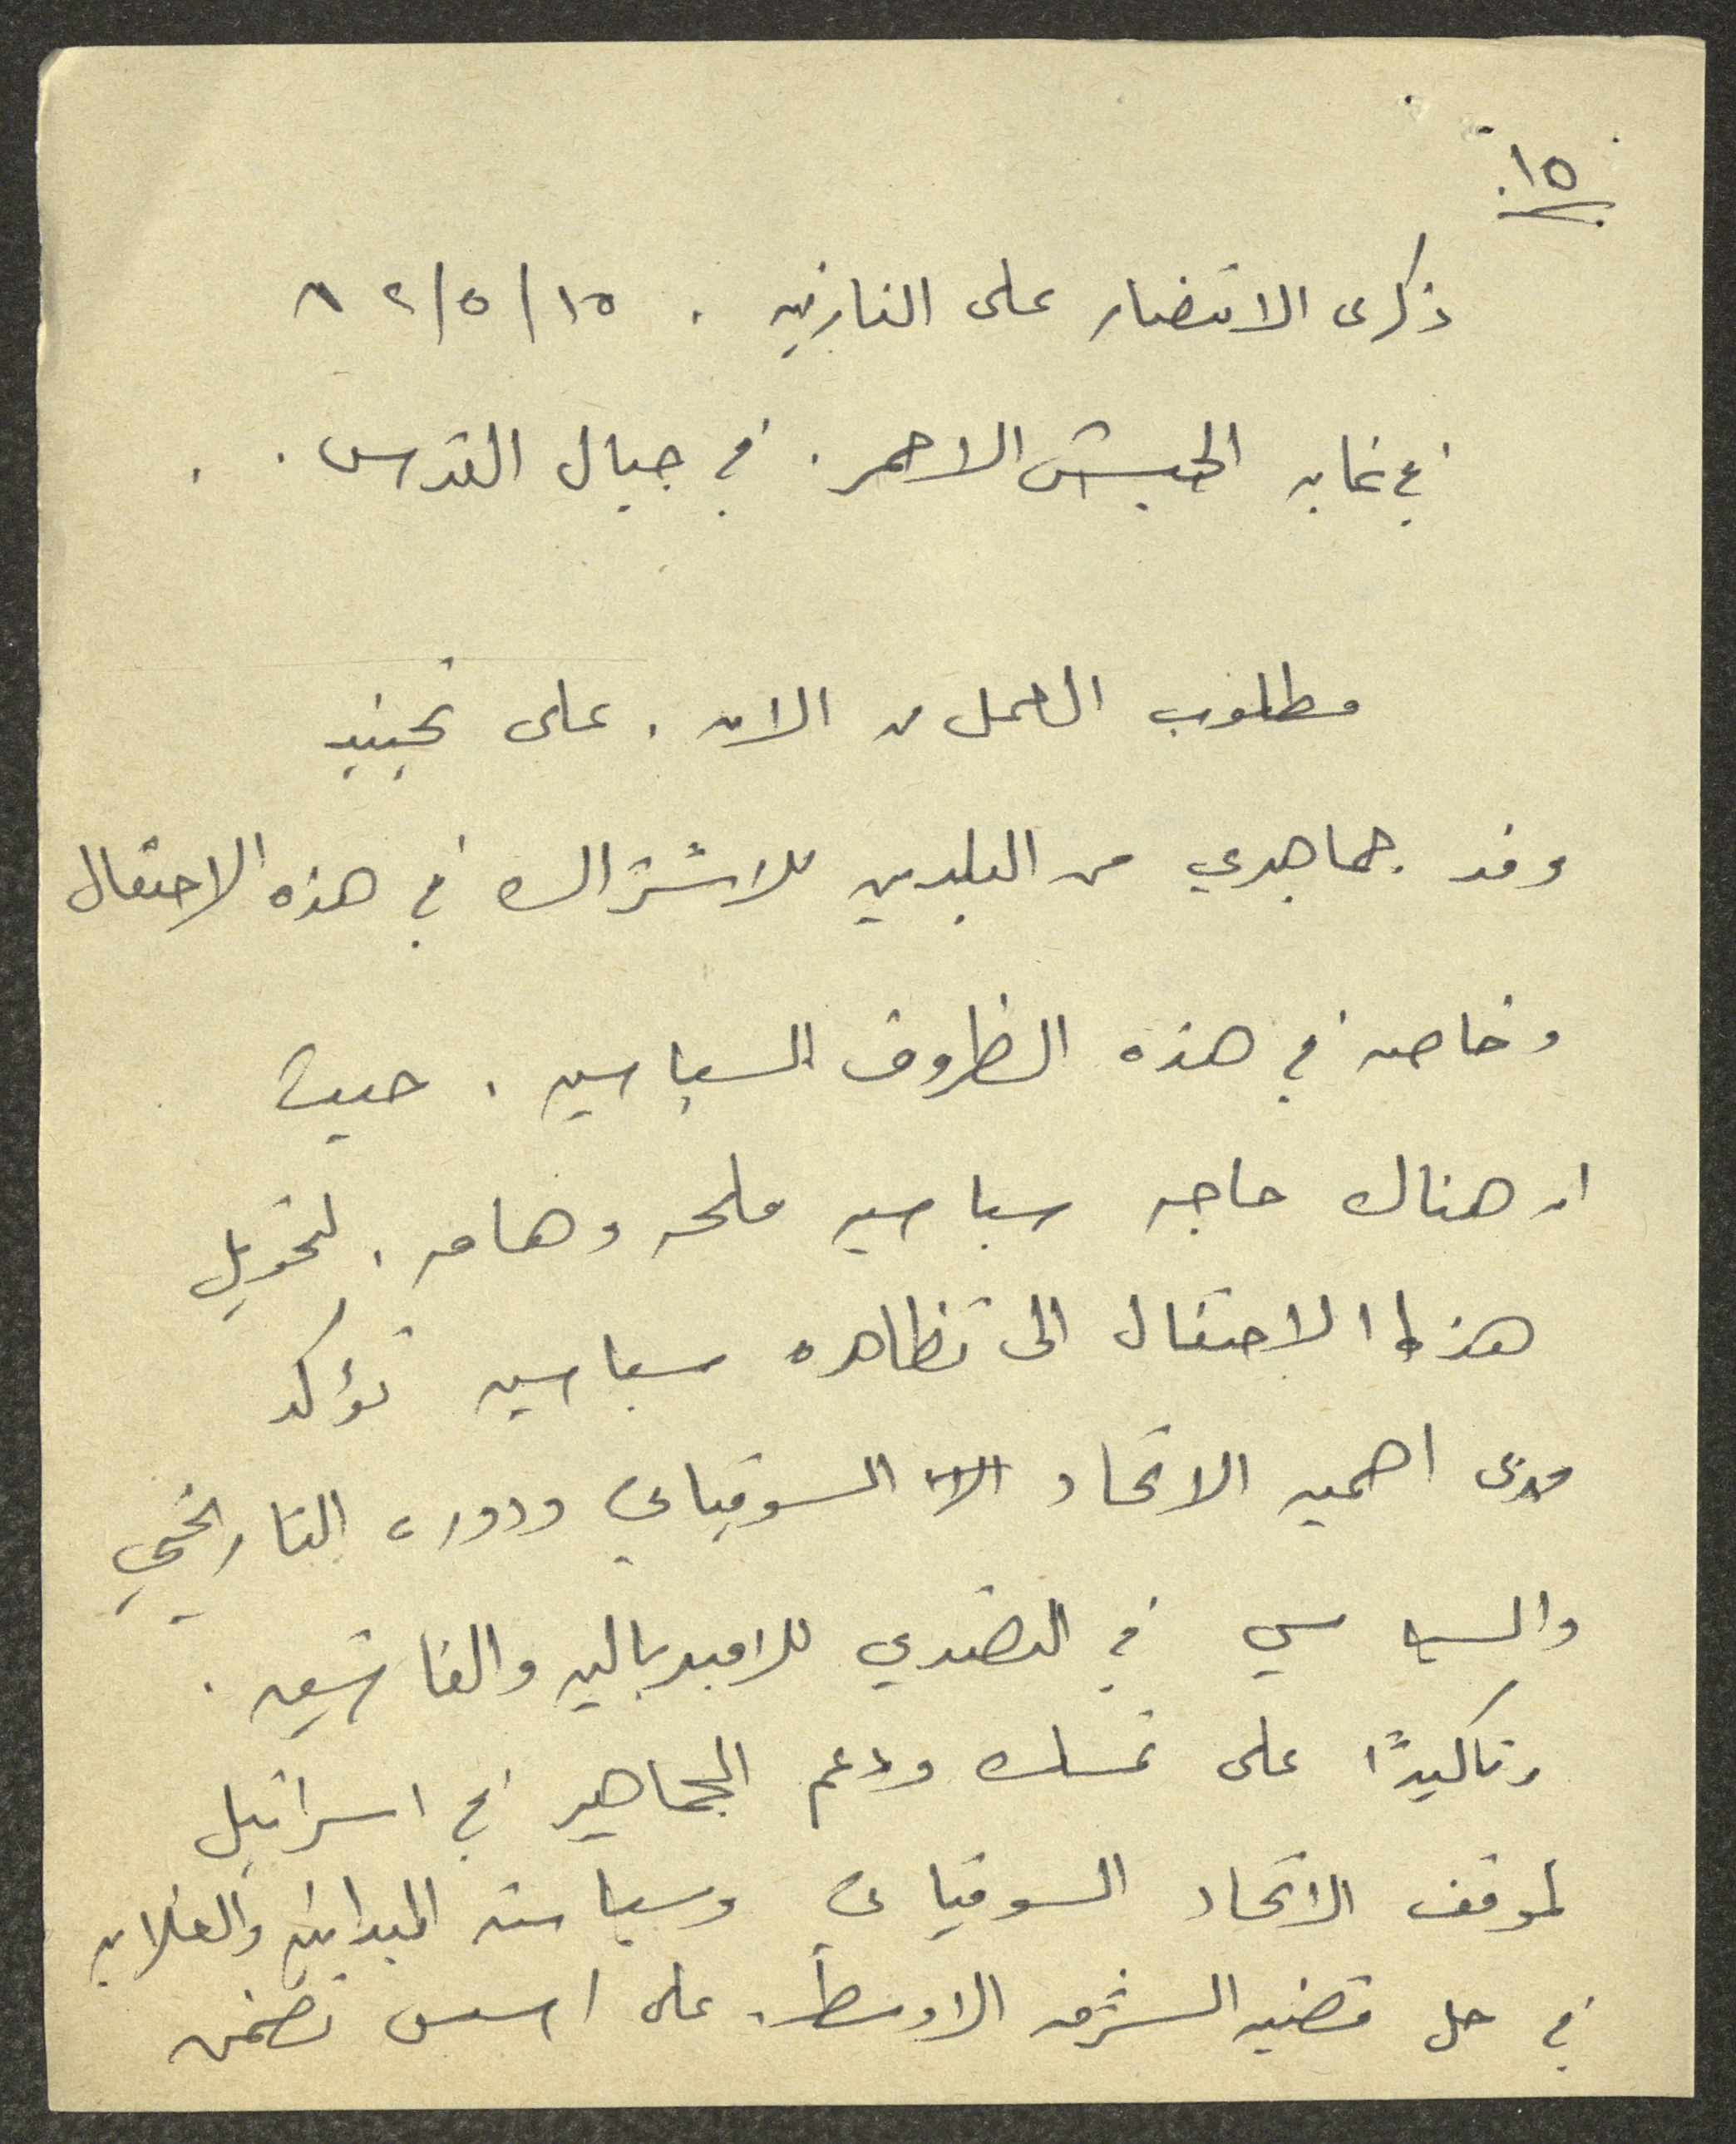 ١٥
ذكرى الانتصار على النازيه . ١٥/٥/٨٢
في غابه الجيش الاحمر . في جبال القدس .
مطلوب العمل من الان . على تجنيد
وفد جماهيري من البلدين للاشتراك في هذه الاحتفال
وخاصه في هذه الظروف السياسيه . حيث
ان هناك حاجه سياسيه ملحه وهامه . لتحويل
هذا الاحتفال الى تظاهره سياسيه تؤكد
مدى اهميه الاتحاد السوفياتي ودوره التاريخي
والسياسي في التصدي للامبرياليه والفاشيه .
وتاكيدًا على تمسك ودعم الجماهير في اسرائيل
لموقف الاتحاد السوفياتي وسياسته المبدئيه والعقلانيه
في حل قضيه الشرق الاوسط . على اسس تضمن